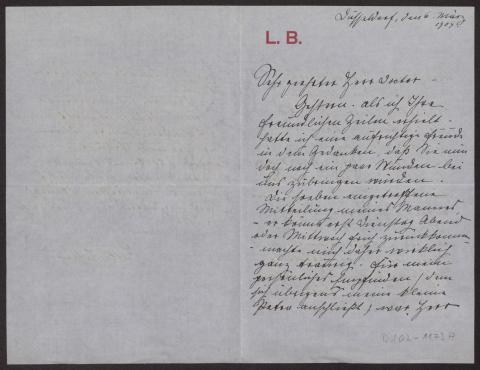 Düsseldorf, den 6. März
L. B.
Sehr geehrter Herr Doctor –
Gestern, als ich Ihre
freundlichen Zeilen erhielt,
hatte ich eine aufrichtige Freude
in dem Gedanken, daß Sie nun
doch noch ein paar Stunden bei
uns zubringen würden.
Die soeben eingetroffene
Mitteilung meines Mannes
– er könne erst Dienstag Abend
oder Mittwoch früh zurückkommen
– machte mich daher wirklich
ganz traurig. Für mein
persönliches Empfinden (dem
sich übrigens meine kleine
Petra anschließt) war Herr